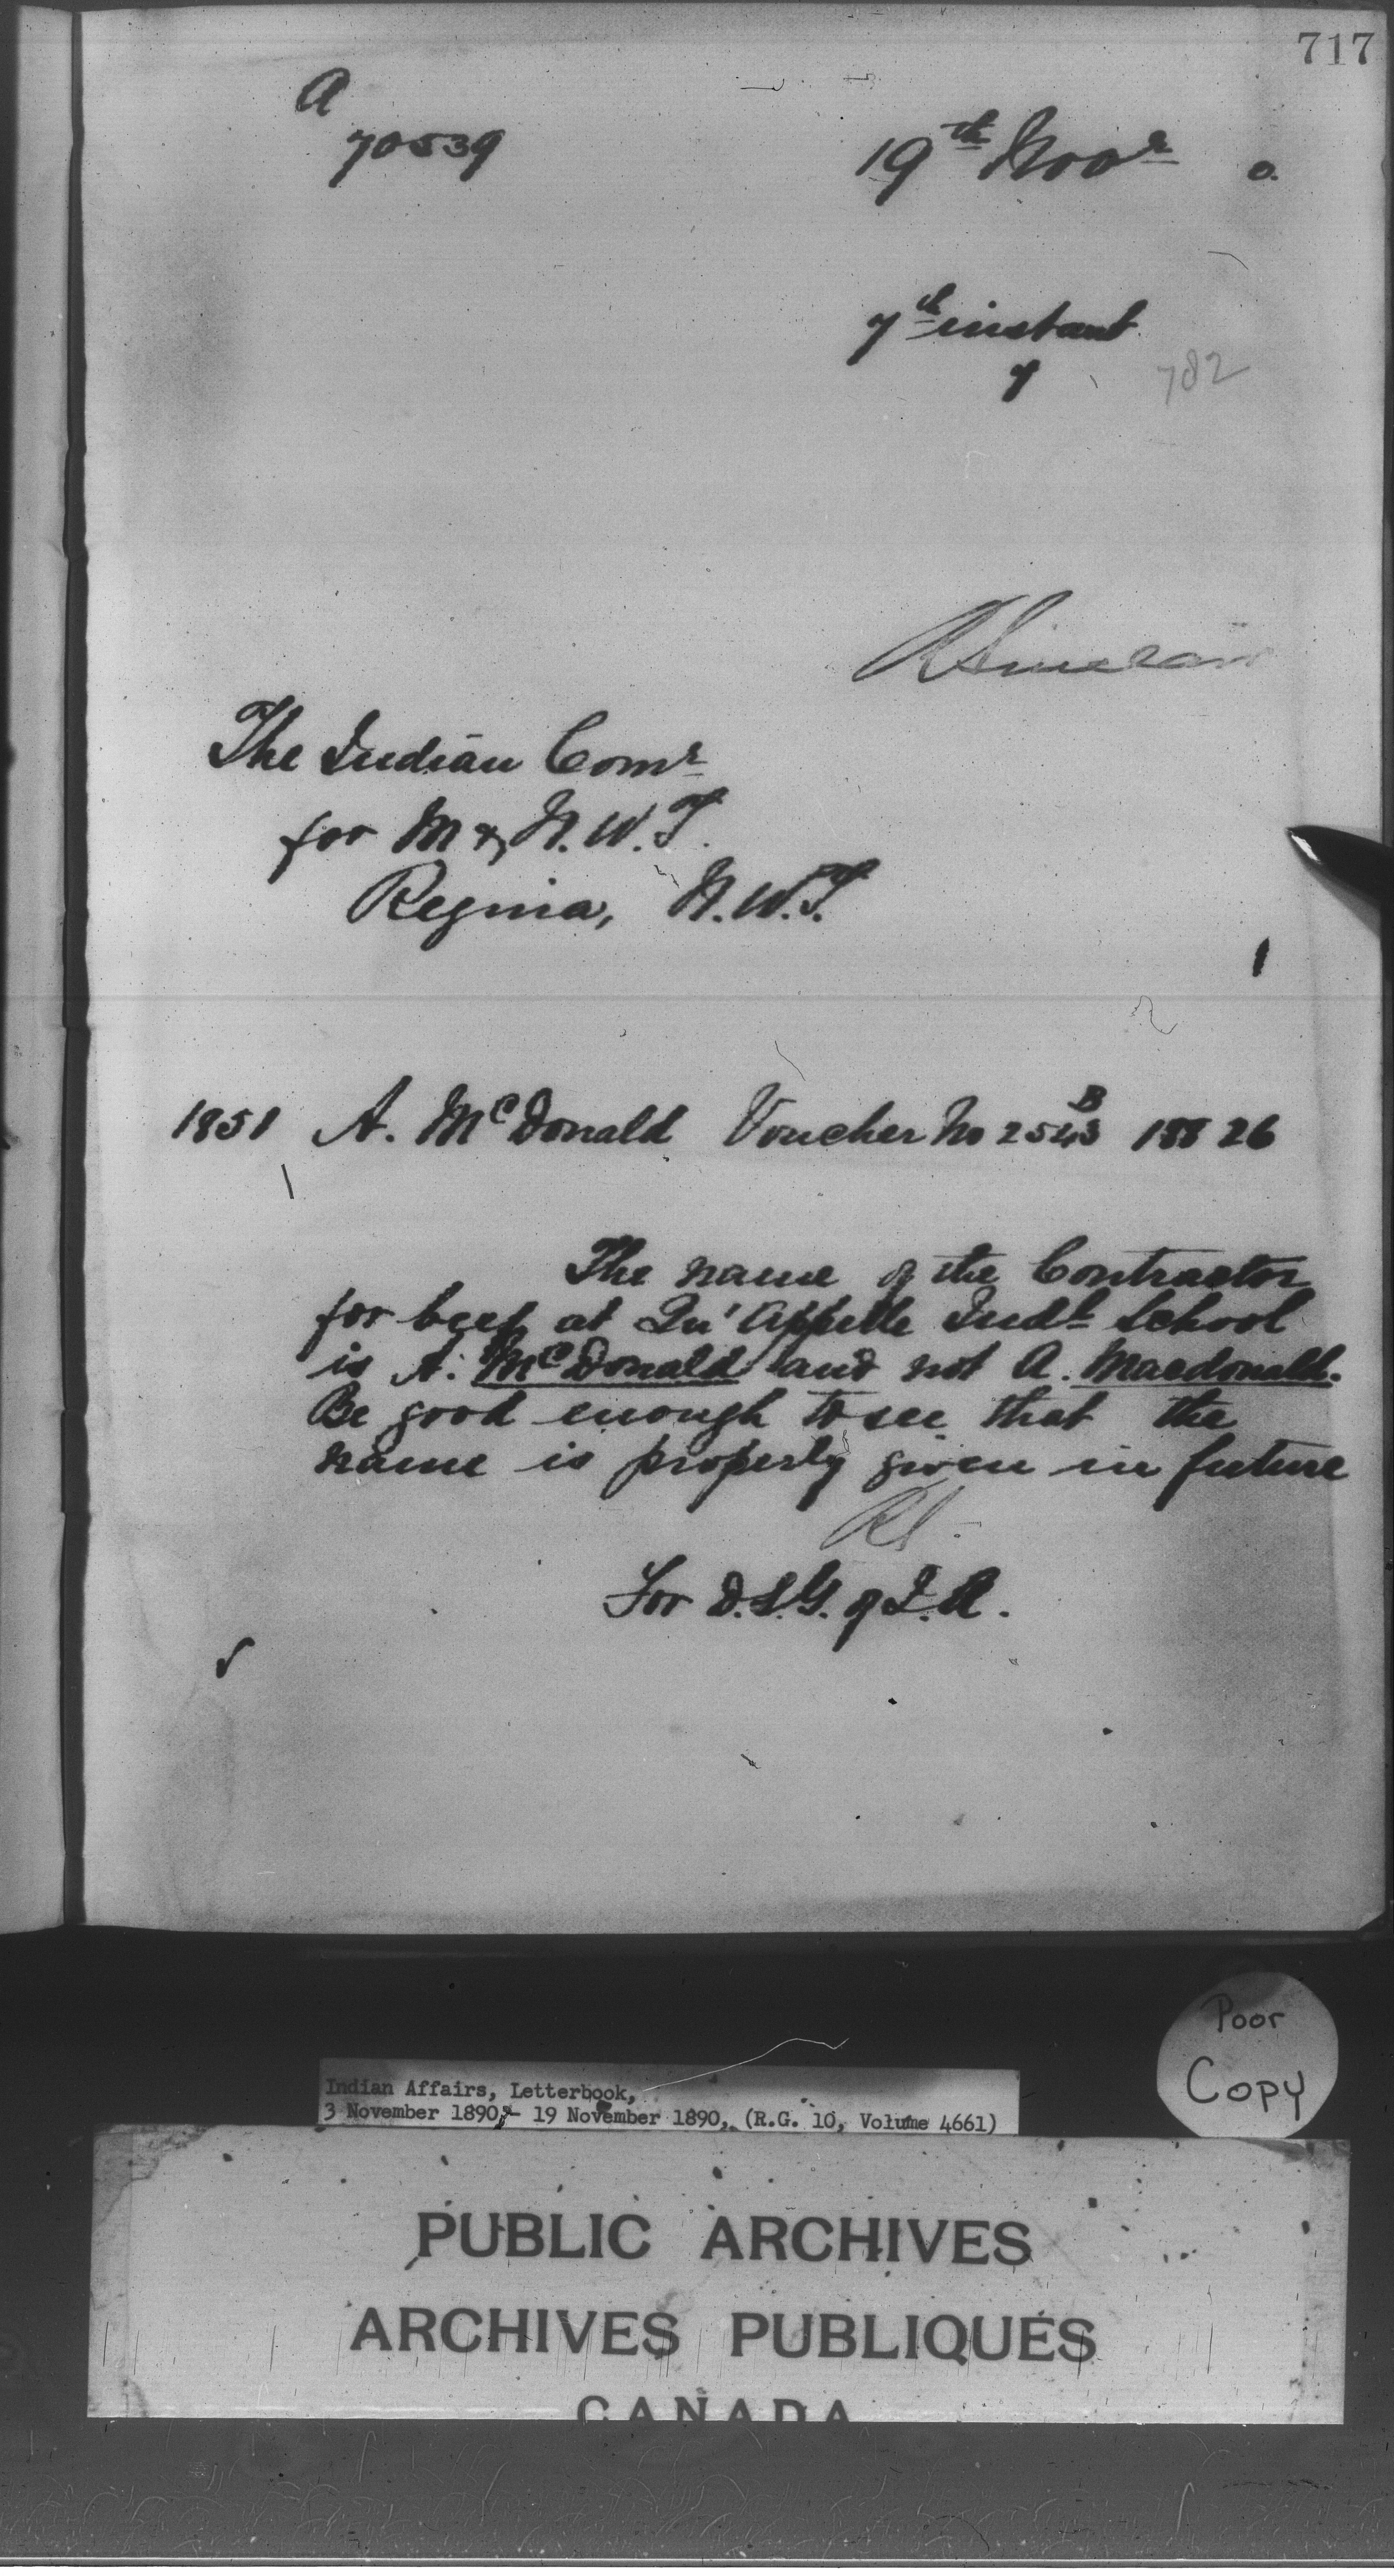 717
A
70539
19th Novr 0.
7th instant
782
RSinclair
The Indian Comr
for M & N.W.T.
Regina, N.W.T.
1851 A. McDonald Voucher No 2543 B 188 26
The name of the Contractor
for beef at Qu'Appelle Indl School
is A. McDonald and not A. Macdonald.
Be good enough to see that the
name is properly given in future
RS.
For D.S.G. of I.A.
Poor
Copy
Indian Affairs, Letterbook,
3 November 1890,- 19 November 1890, (R.G. 10, Volume 4661)
PUBLIC ARCHIVES
ARCHIVES PUBLIQUES
CANADA